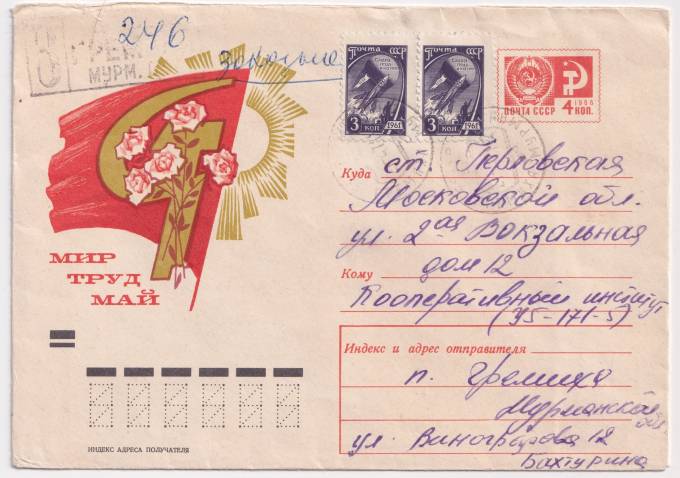 246
З
ГРЕМ
МУРМ.
заказное
Почта СССР
Слава
3 коп. 1961
Почта СССР
Слава
3 коп. 1961
1966
ПОЧТА СССР 4 КОП.
МИР
ТРУД
МАЙ
Куда ст. Перловская
Московской обл.
ул. 2ая Вокзальная
Кому дом 12
Кооперативный институт
(У5-171-5)
Индекс и адрес отправителя
п. Гремиха
Мурманской обл.
ул. Виноградова 12
Бахтурина
ИНДЕКС АДРЕСА ПОЛУЧАТЕЛЯ